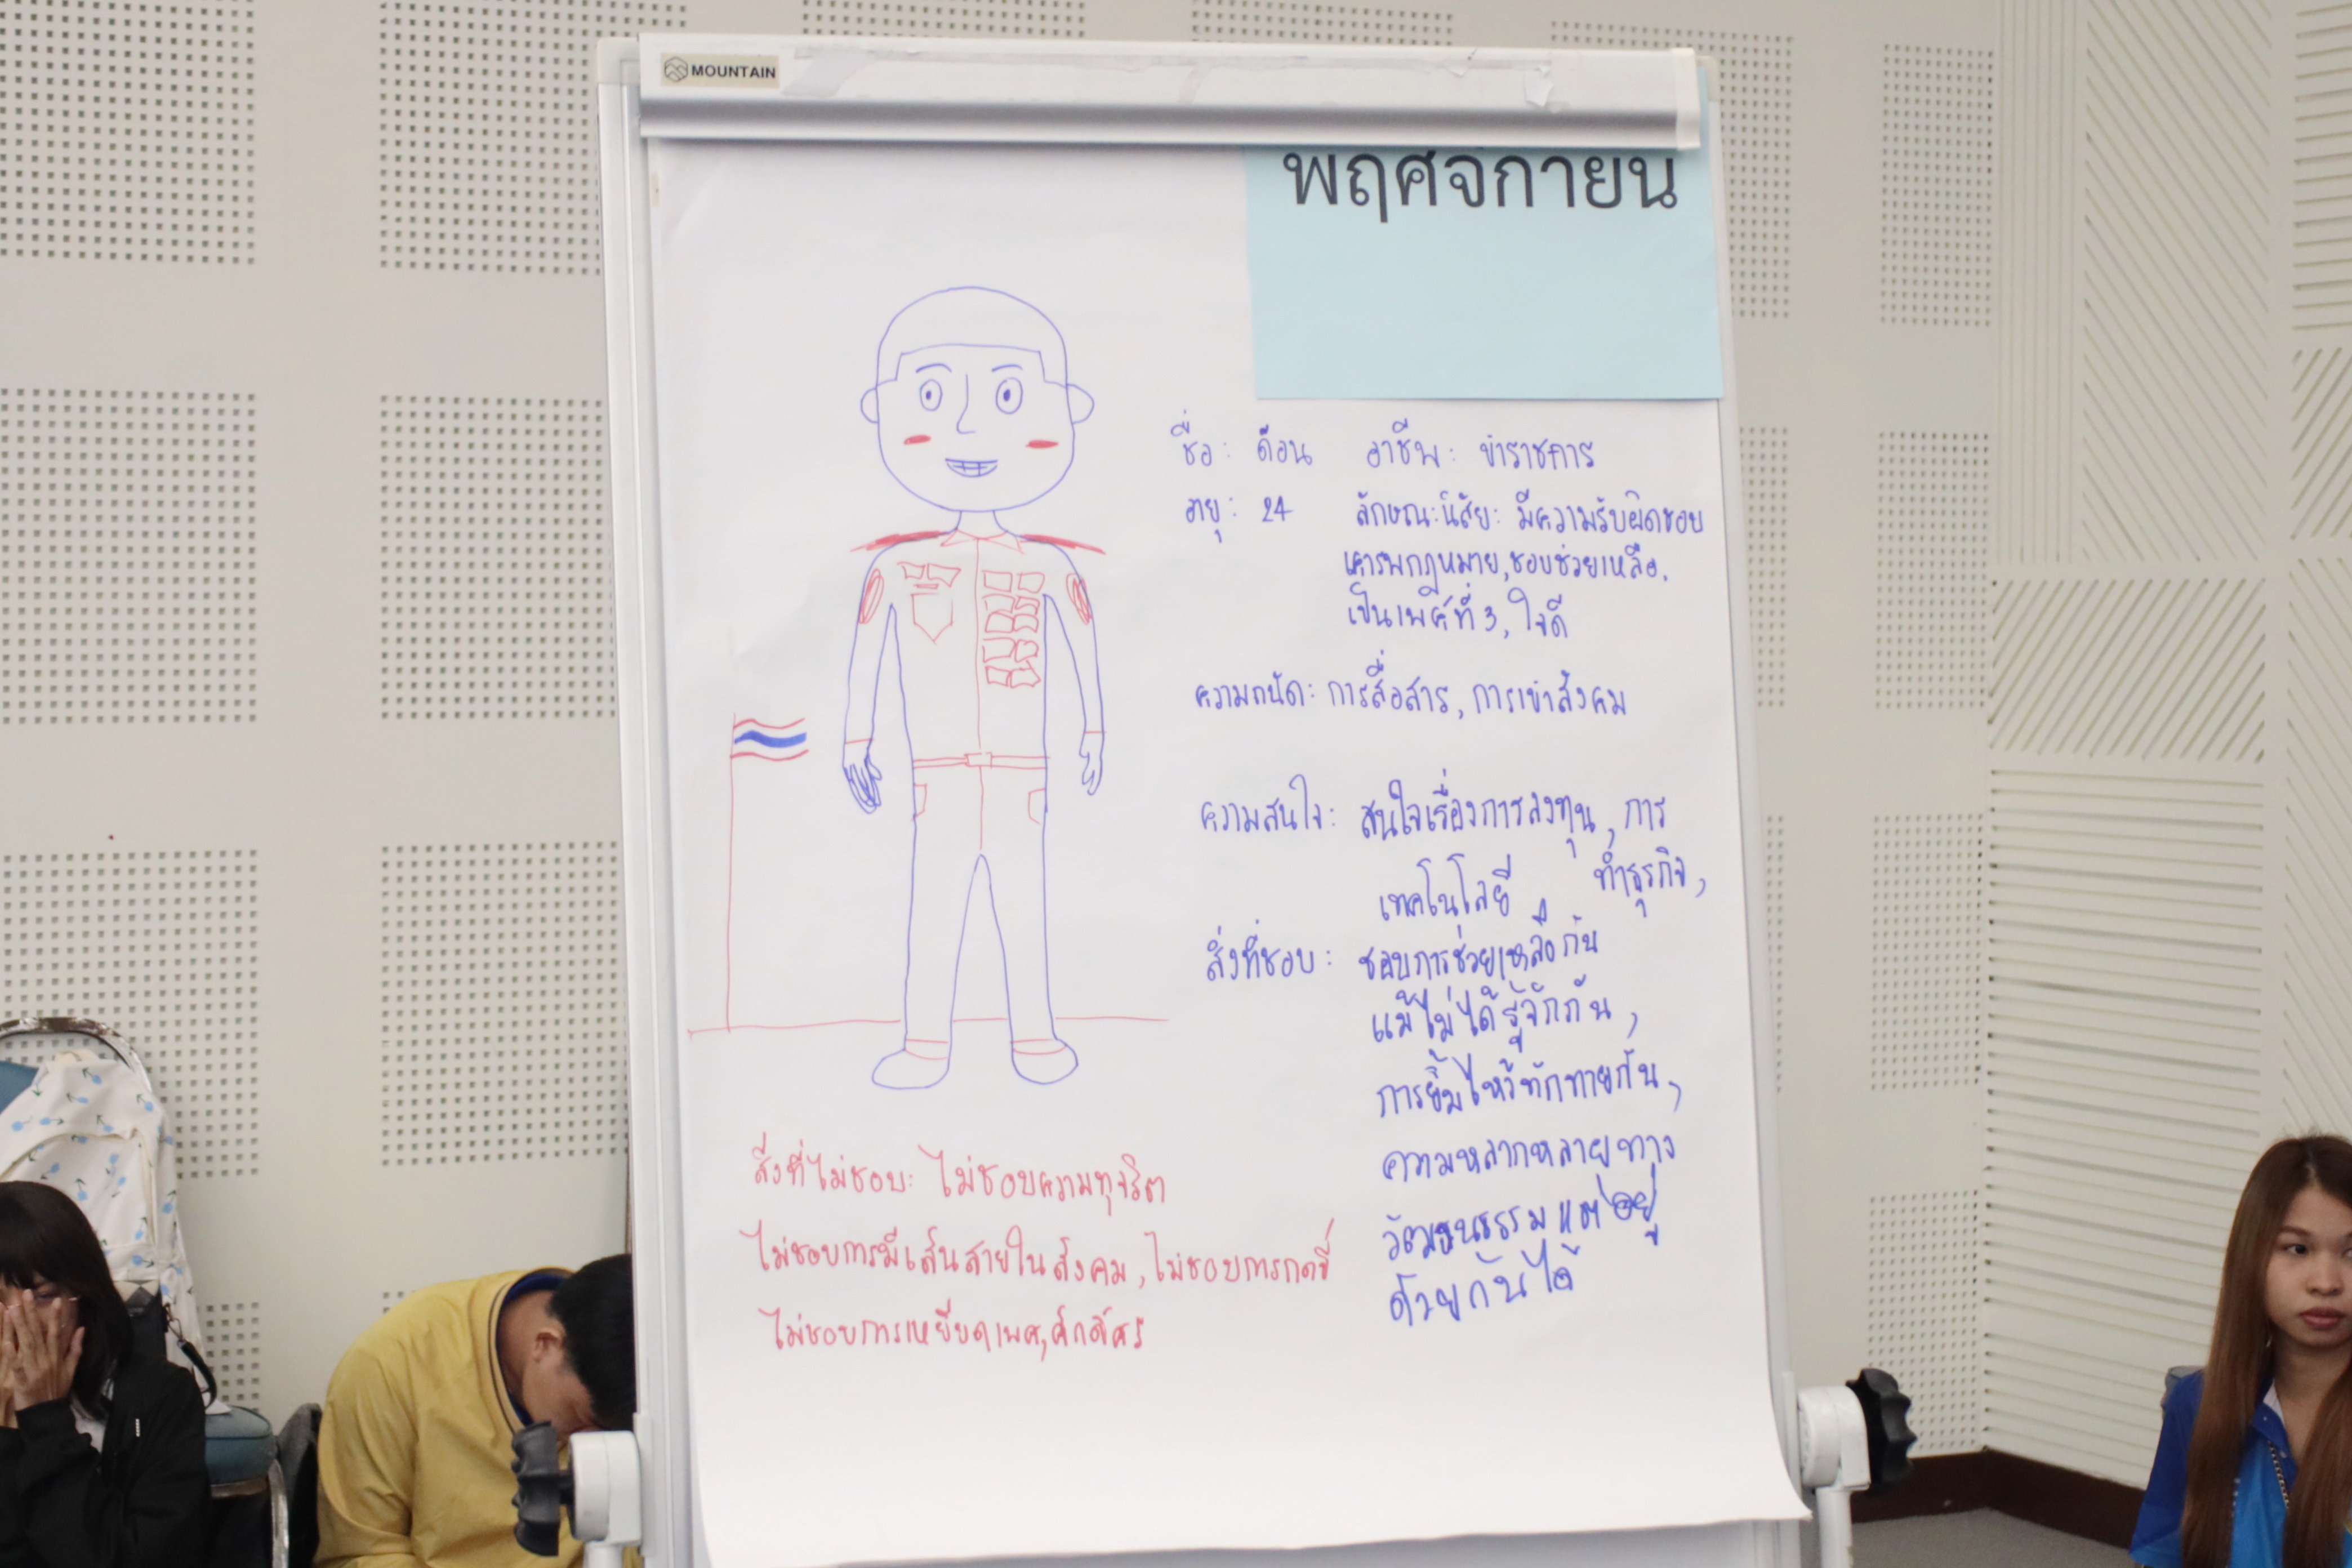 MOUNTAIN
พฤศจิกายน
ชื่อ: ด๊อน อาชีพ: ข้าราชการ
อายุ: 24 ลักษณะนิสัย: มีความรับผิดชอบ
เคารพกฎหมาย, ชอบช่วยเหลือ,
เป็นเพศที่ 3, ใจดี
ความถนัด: การสื่อสาร, การเข้าสังคม
ความสนใจ: สนใจเรื่องการลงทุน, การ
ทำธุรกิจ,
เทคโนโลยี
สิ่งที่ชอบ: ชอบการช่วยเหลือกัน
แม้ไม่ได้รู้จักกัน,
การยิ้มไหว้ทักทายกัน,
ความหลากหลายทาง
วัฒนธรรมแต่อยู่
ด้วยกันได้
สิ่งที่ไม่ชอบ: ไม่ชอบความทุจริต
ไม่ชอบการมีเส้นสายในสังคม, ไม่ชอบการกดขี่
ไม่ชอบการเหยียดเพศ, ศักดิ์ศรี